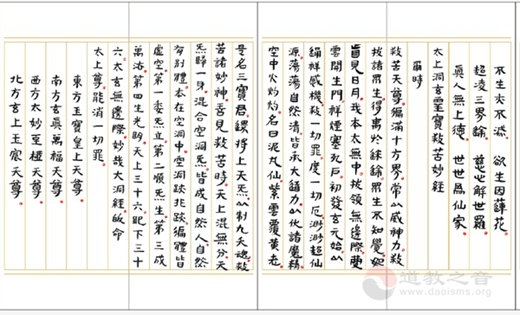 不生亦不滅　欲生因蓮花
超凌三界途　慈心解世羅
真人無上德　世世為仙家
太上洞玄靈寶救苦妙經
爾時
救苦天尊徧滿十方界常以威神力救
拔諸眾生得離於迷途眾生不知覺如
盲見日月我本太無中拔領無邊際慶
雲開生門祥煙塞死戶初發玄元始以
通祥感機救一切罪度一切厄渺渺超仙
源蕩蕩自然清皆承大道力以伏諸魔精
空中火灼灼名曰泥丸仙紫雲覆黃老
是名三寶君還將上天炁以制九天魂救
苦諸妙神善見救苦時天上混無分天
炁歸一身混合空洞炁皆成自然人自然
有別體本在空洞中空洞跡非跡徧體皆
虛空第一委炁立第二順炁生第三成
萬法第四生光明天上三十六地下三十
六太玄無邊際妙哉大洞經皈命
太上尊能消一切罪
東方玉寶皇上天尊
南方玄真萬福天尊
西方太妙至極天尊
北方玄上玉宸天尊
道教之音
www.daoisms.org